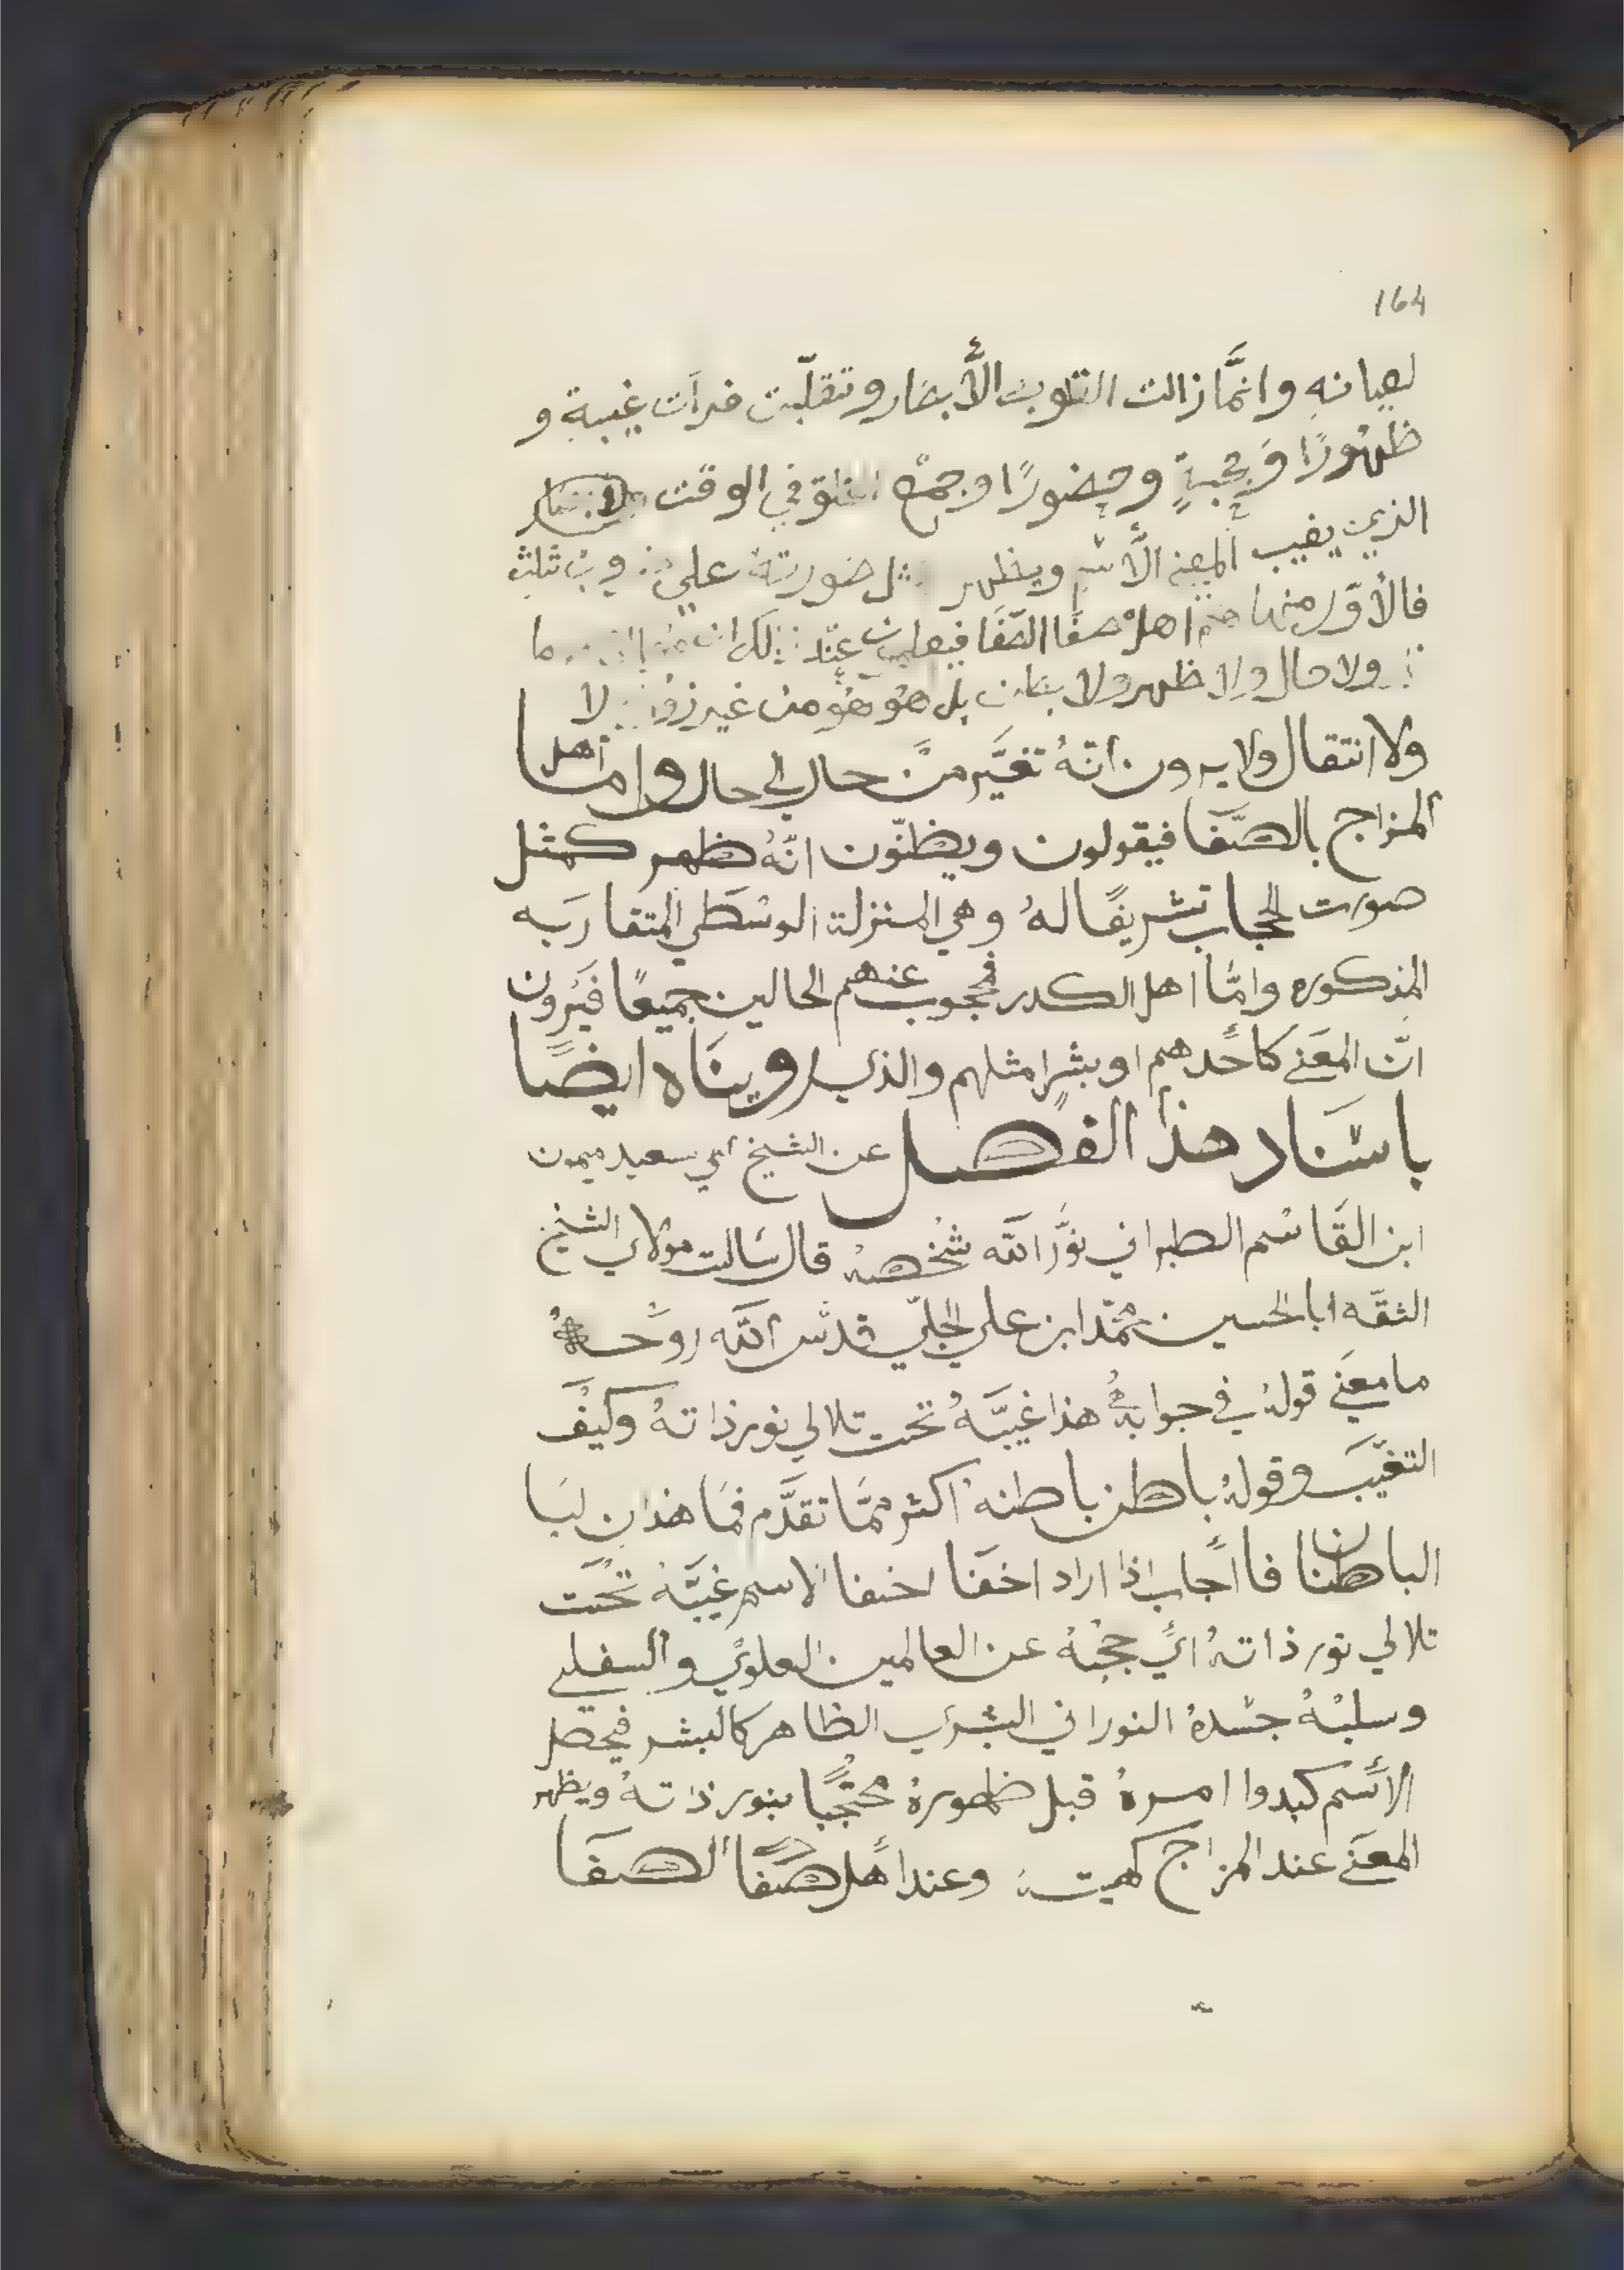 164
لعيانه وانمَّا زالت القلوب الأبصار وتقلّبت فرأت غيبةٍ و
ظهورًا وحجبةٍ وحضورًا وجمع في الوقت
الذي يغيب المعنى الأسم ويظهر صورتهُ علي
فالأوّل منها هم اهل صفا الصّفا فيعلمون عند ذلك ان ما
ولا حال ولا ظهر ولا بطن بل هو هو من غير زوال لا
ولا انتقال ولا يرون انّهُ تغيَّر منْ حال الي حال واما اهل
المزاج بالصَّفا فيقولون ويظنّون انّهُ ظهر كمثل
صورت الحجاب تشريفًا لهُ وهي المنزلة الوسْطى المتقاربَه
المذكوره وامَّا اهل الكدر فمحجوب عنهم الحالين جميعًا فيَرون
انّ المعَنى كأحَدهم او بشرا مثلهم والذي رويناه ايضًا
باسْنَاد هذا الفصل عن الشيخ ابي سعيد ميمون
ابن القَاسْم الطبراني نوَّر اللّه شخْصهُ قال سَالت مولاي الشيخ
الثقَه ابا الحسين محمّد ابن علي الجلّي قدَّس اللّه روحهُ
ما معَنى قولهُ في جوابهُ هذا غيبَّهُ تحت تلالي نور ذاتهُ وكيْفَ
التغيَّبَ وقولهُ باطن باطنه اكثر ممَّا تقدَّم فمَا هذان لنَا
الباطنان فاأجاب اذا اراد اخفَا اخفا الاسم غيبَّهُ تحْت
تلالي نور ذاتهُ ايَّ حجْبهُ عن العالمين العلوي والسفلي
وسلبْهُ جسْدهُ النوراني البشري الظاهر كالبشر فيحصل
الأسْم كبدوا امرهُ قبل ظهورهُ محتجبًا بنور ذاتهُ ويظهر
المعَنى عند المزاج كهيتهُ وعند اهْل صَفَا الصفَا